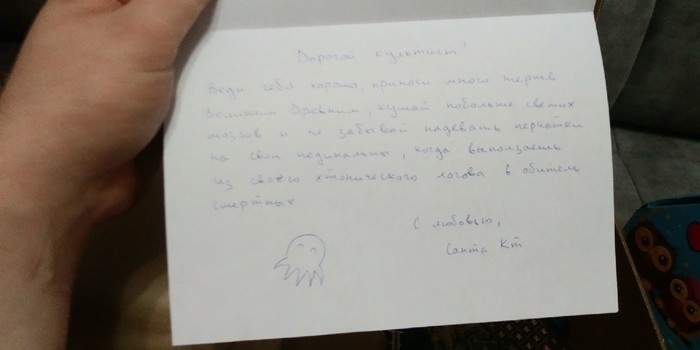 Дорогой культист!
Веди себя хорошо, приноси много жертв
Великим Древним, кушай побольше свежих
мозгов и не забывай надевать перчатки
на свои педипальпы, когда выползаешь
из своего хтонического логова в обитель
смертных
С любовью,
Санта Кт